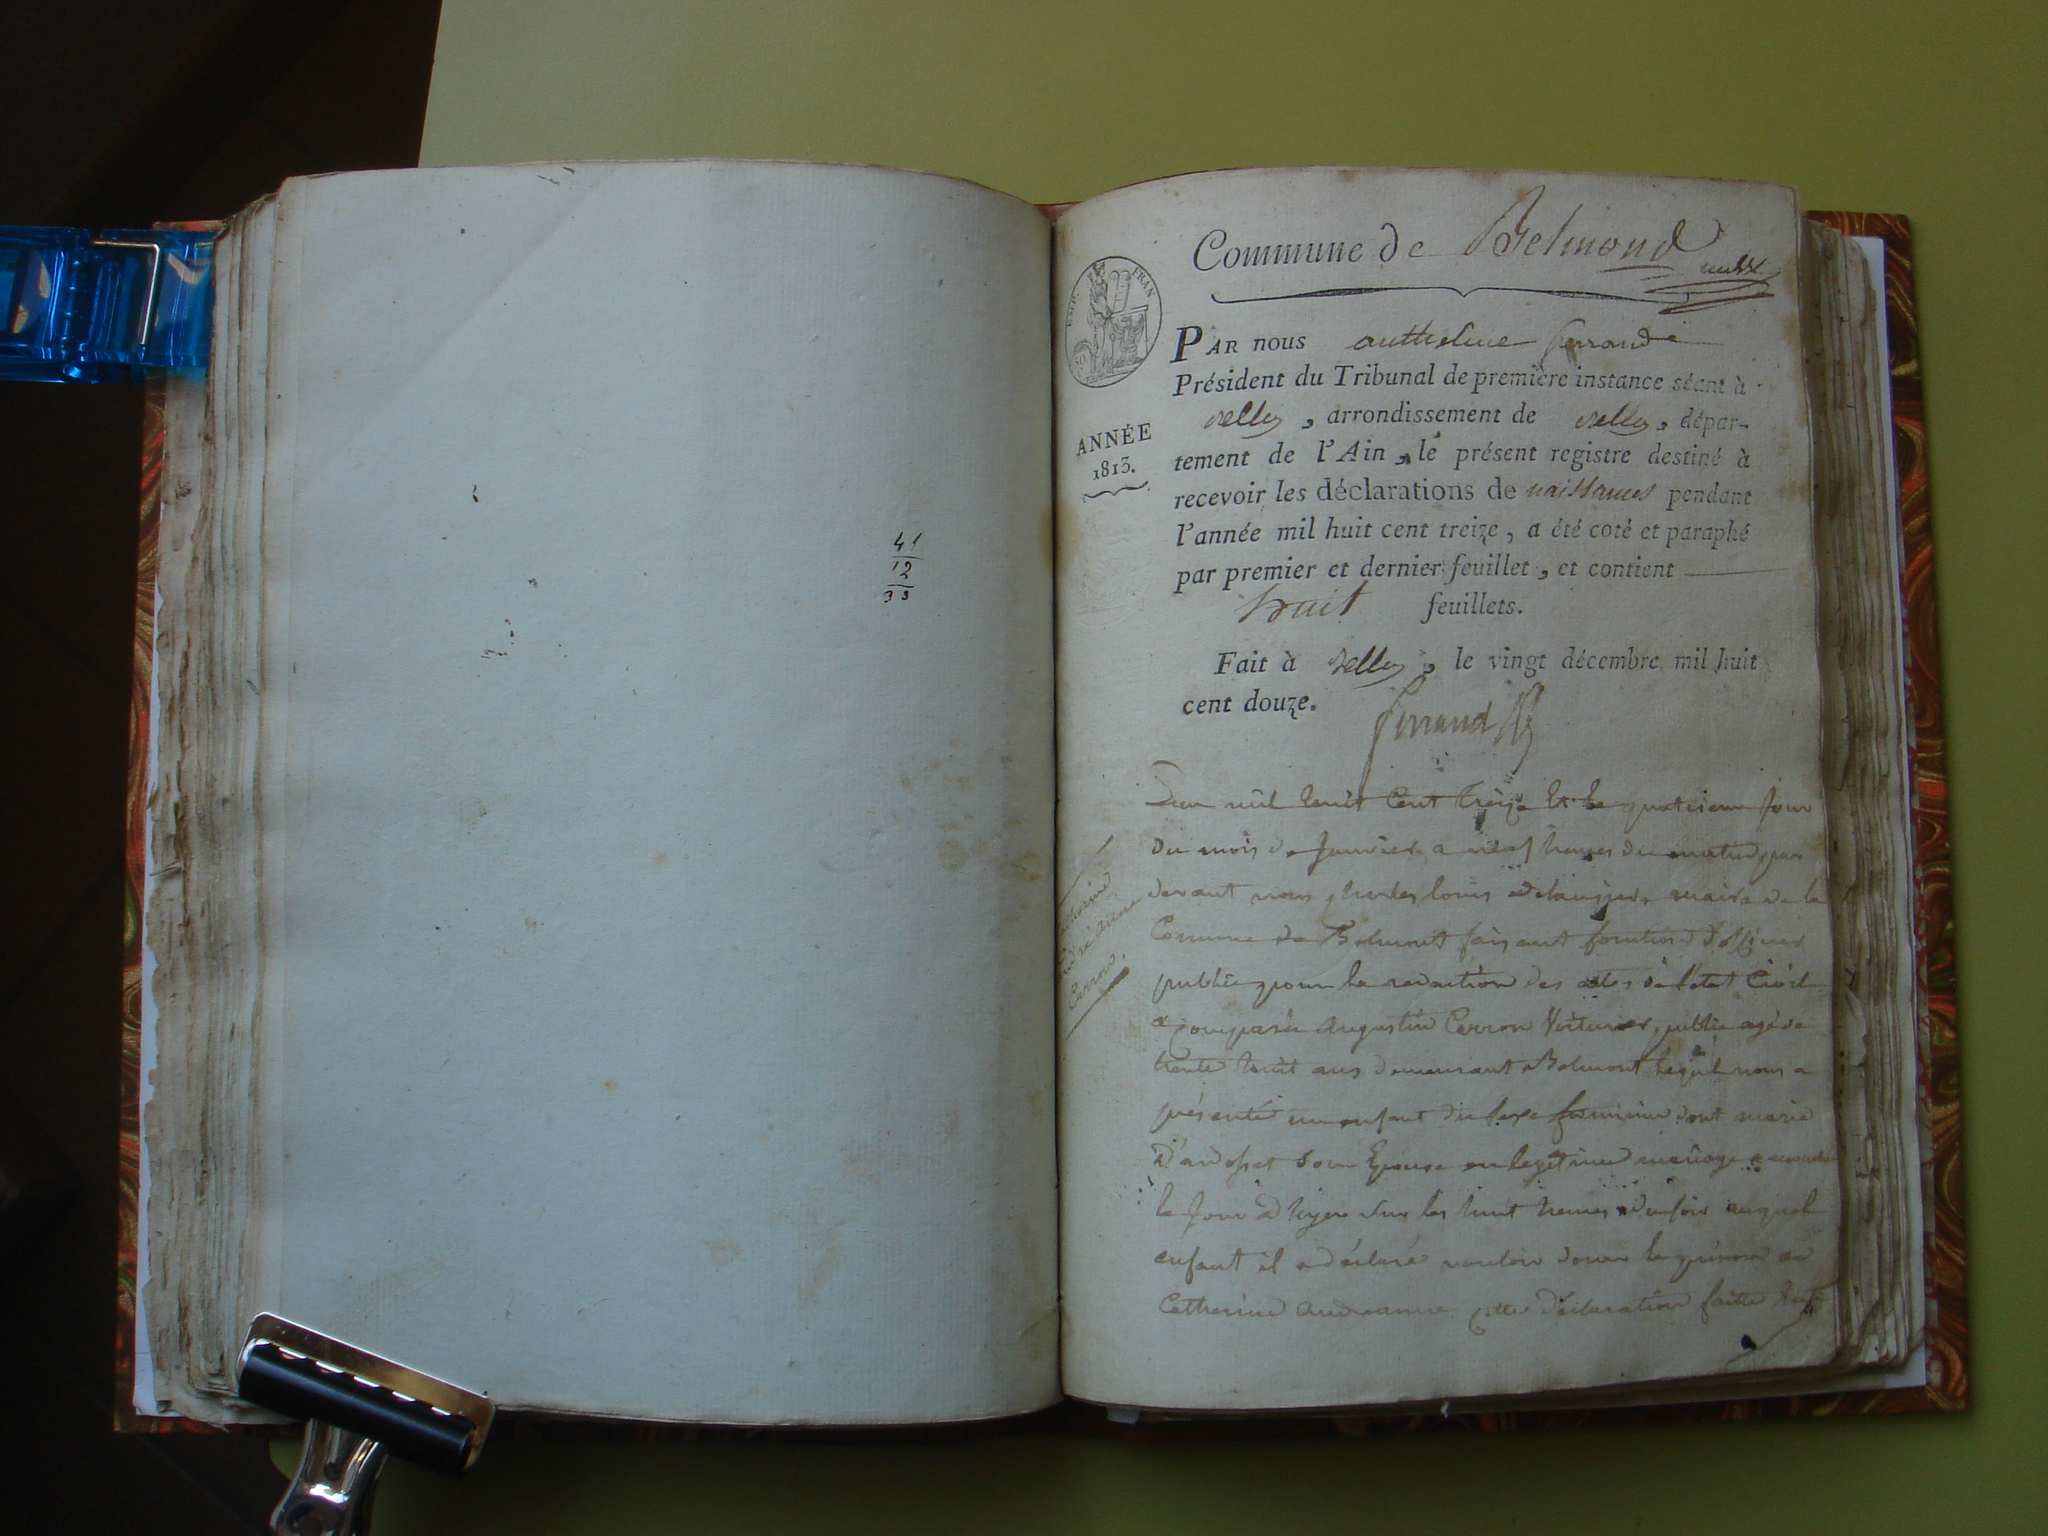 41
12
33
Commune de Belmond
EMP. FRAN
ANNÉE
1813.
PAR nous anthelme ferrand
Président du Tribunal de première instance séant à
Belley, arrondissement de Belley, dépar-
tement de l'Ain, le présent registre destiné à
recevoir les déclarations de naissances pendant
l'année mil huit cent treize, a été coté et paraphé
par premier et dernier feuillet, et contient
huit feuillets.
Fait à Belley, le vingt décembre mil huit
cent douze.
ferrand
Carron
L'an mil huit Cent treize et le quatrieme jour
du mois de Janvier a neuf heures du matin par
devant nous louis maire de la
Commune de Belmont faisant fonction d'officier
public pour la redaction des actes de l'etat Civil
a comparu augustin Carron Voiturier public agé de
trente huit ans demeurant a Belmont lequel nous a
présenté un enfant du sexe feminin dont marie
son Epouse en legitime mariage
le jour d'hyer sur les huit heures du soir auquel
enfant il a déclaré vouloir donner le prénom de
Catherine cette déclaration faitte